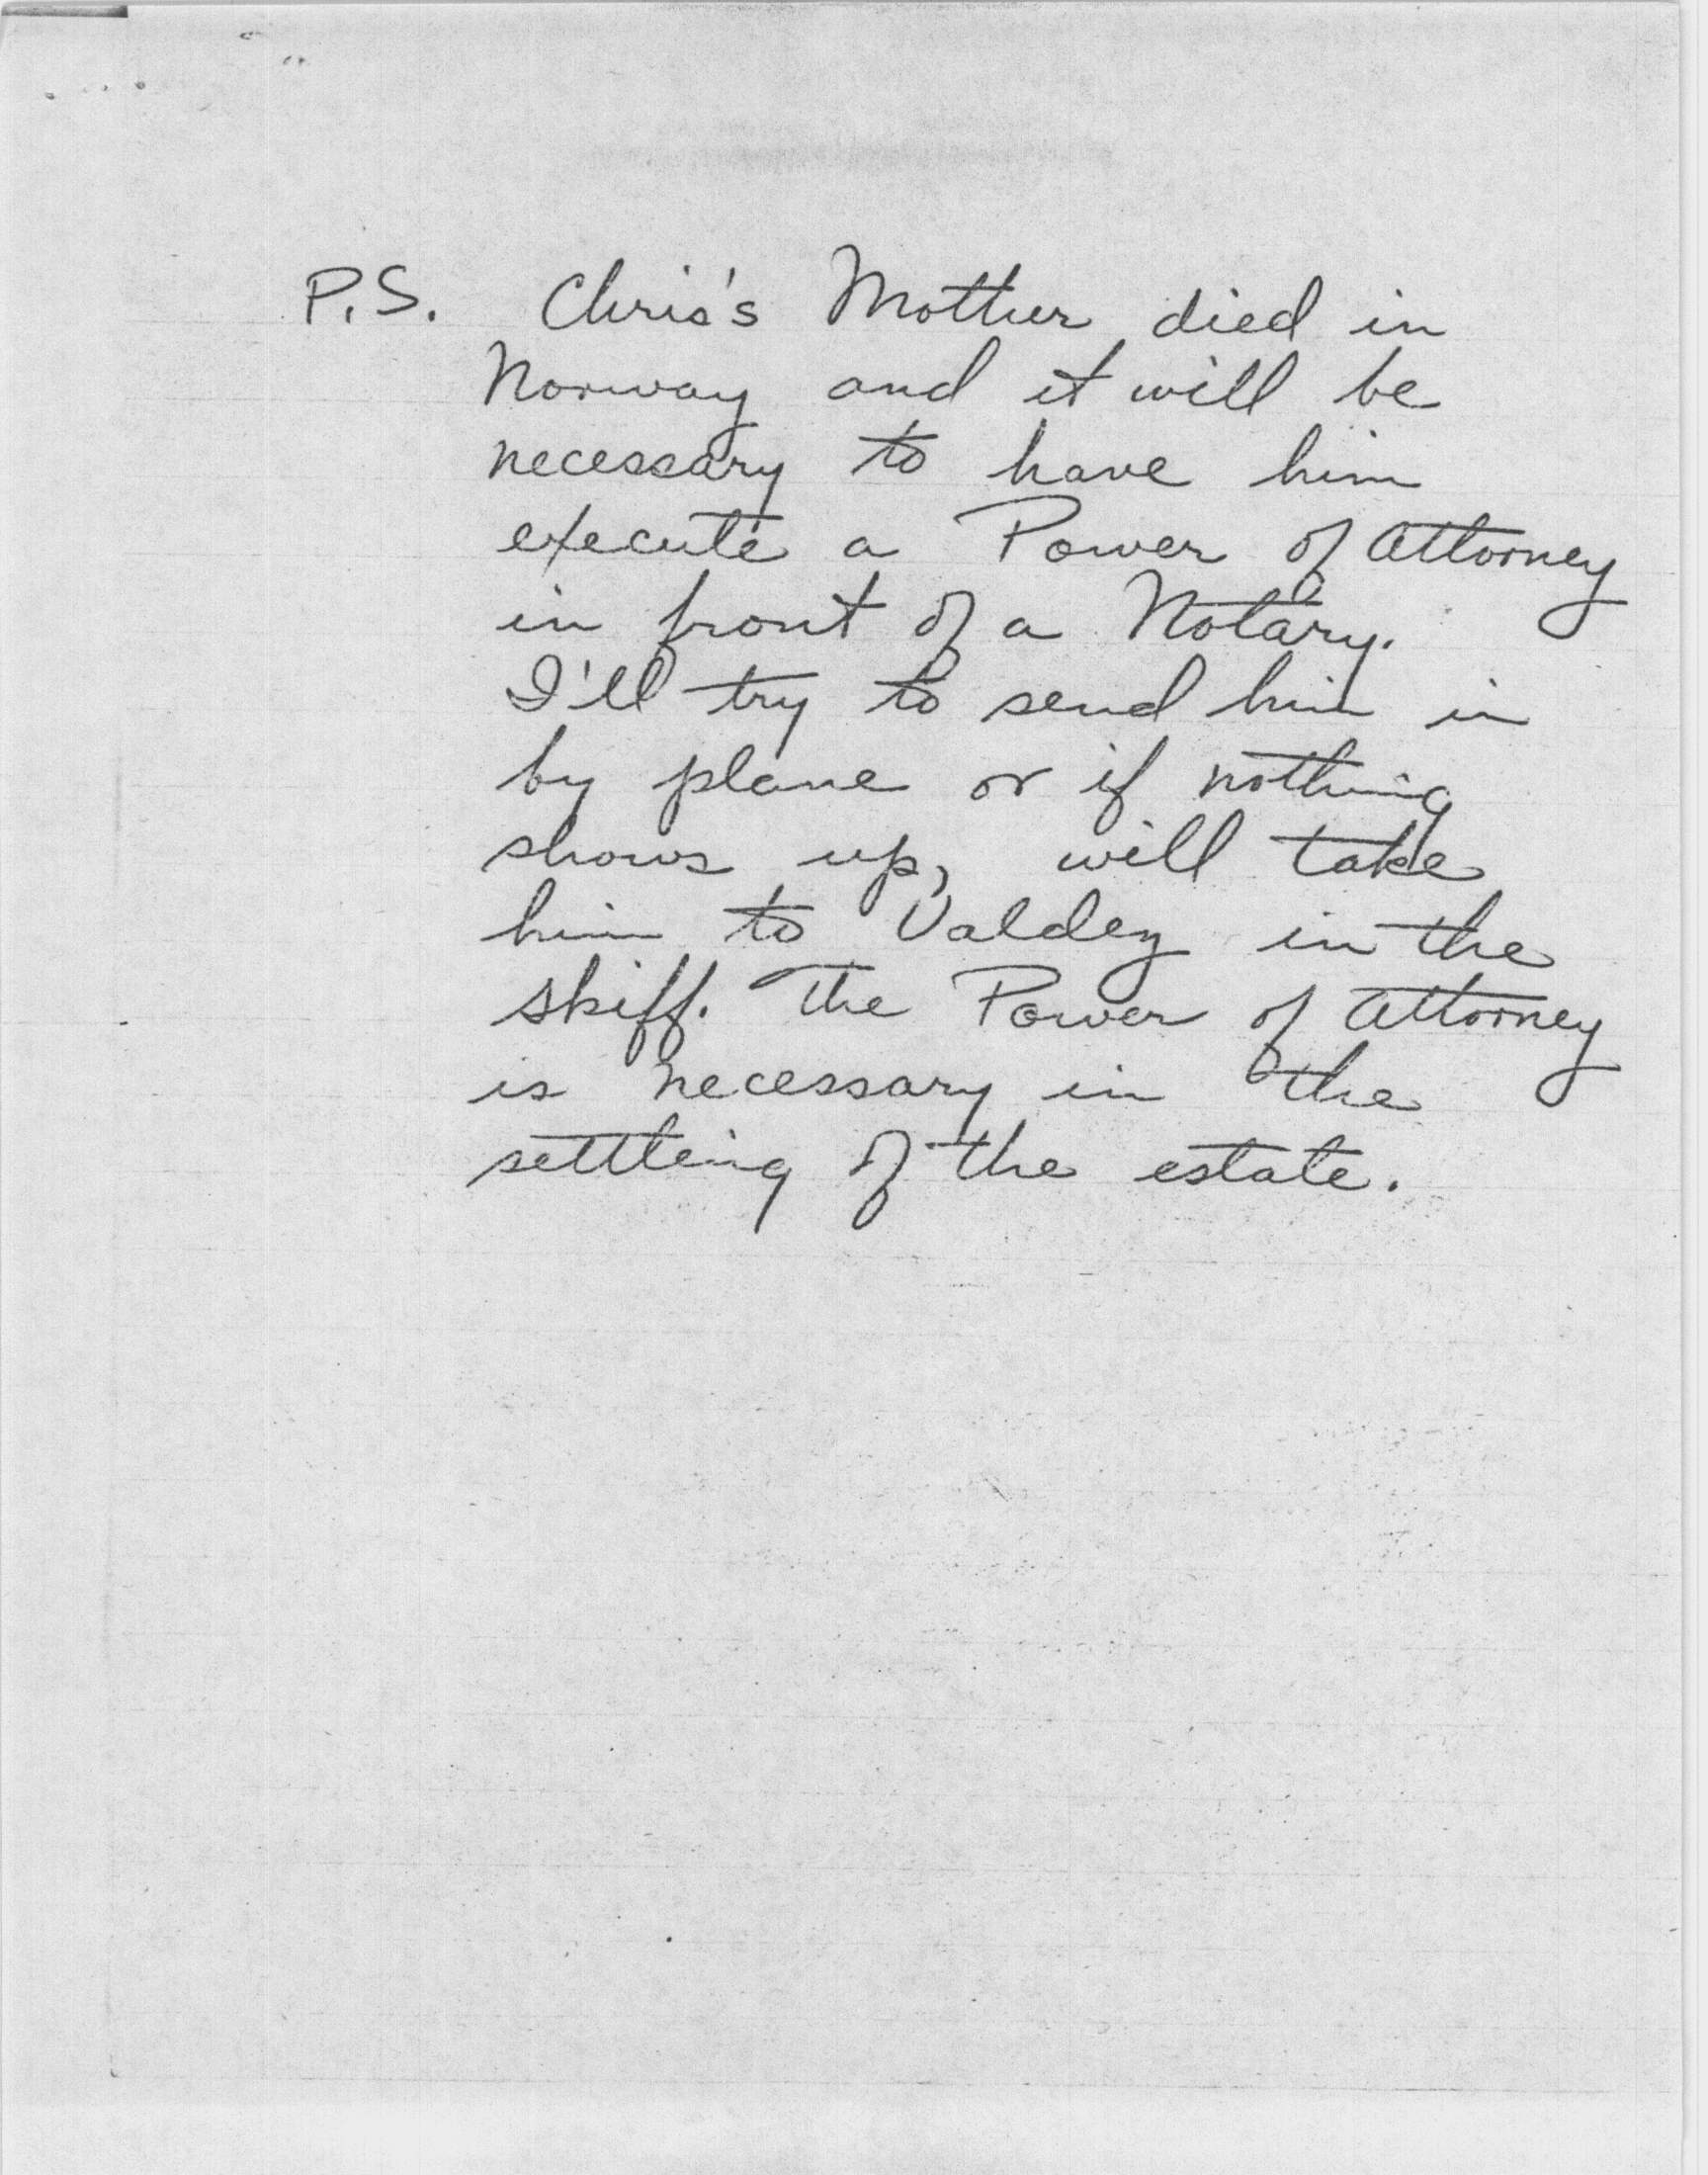 P.S. Chris's Mother died in
Norway and it will be
necessary to have him
execute a Power of Attorney
in front of a Notary.
I'll try to send him in
by plane or if nothing
shows up, will take
him to Valdez in the
skiff. The Power of Attorney
is necessary in the
settling of the estate.